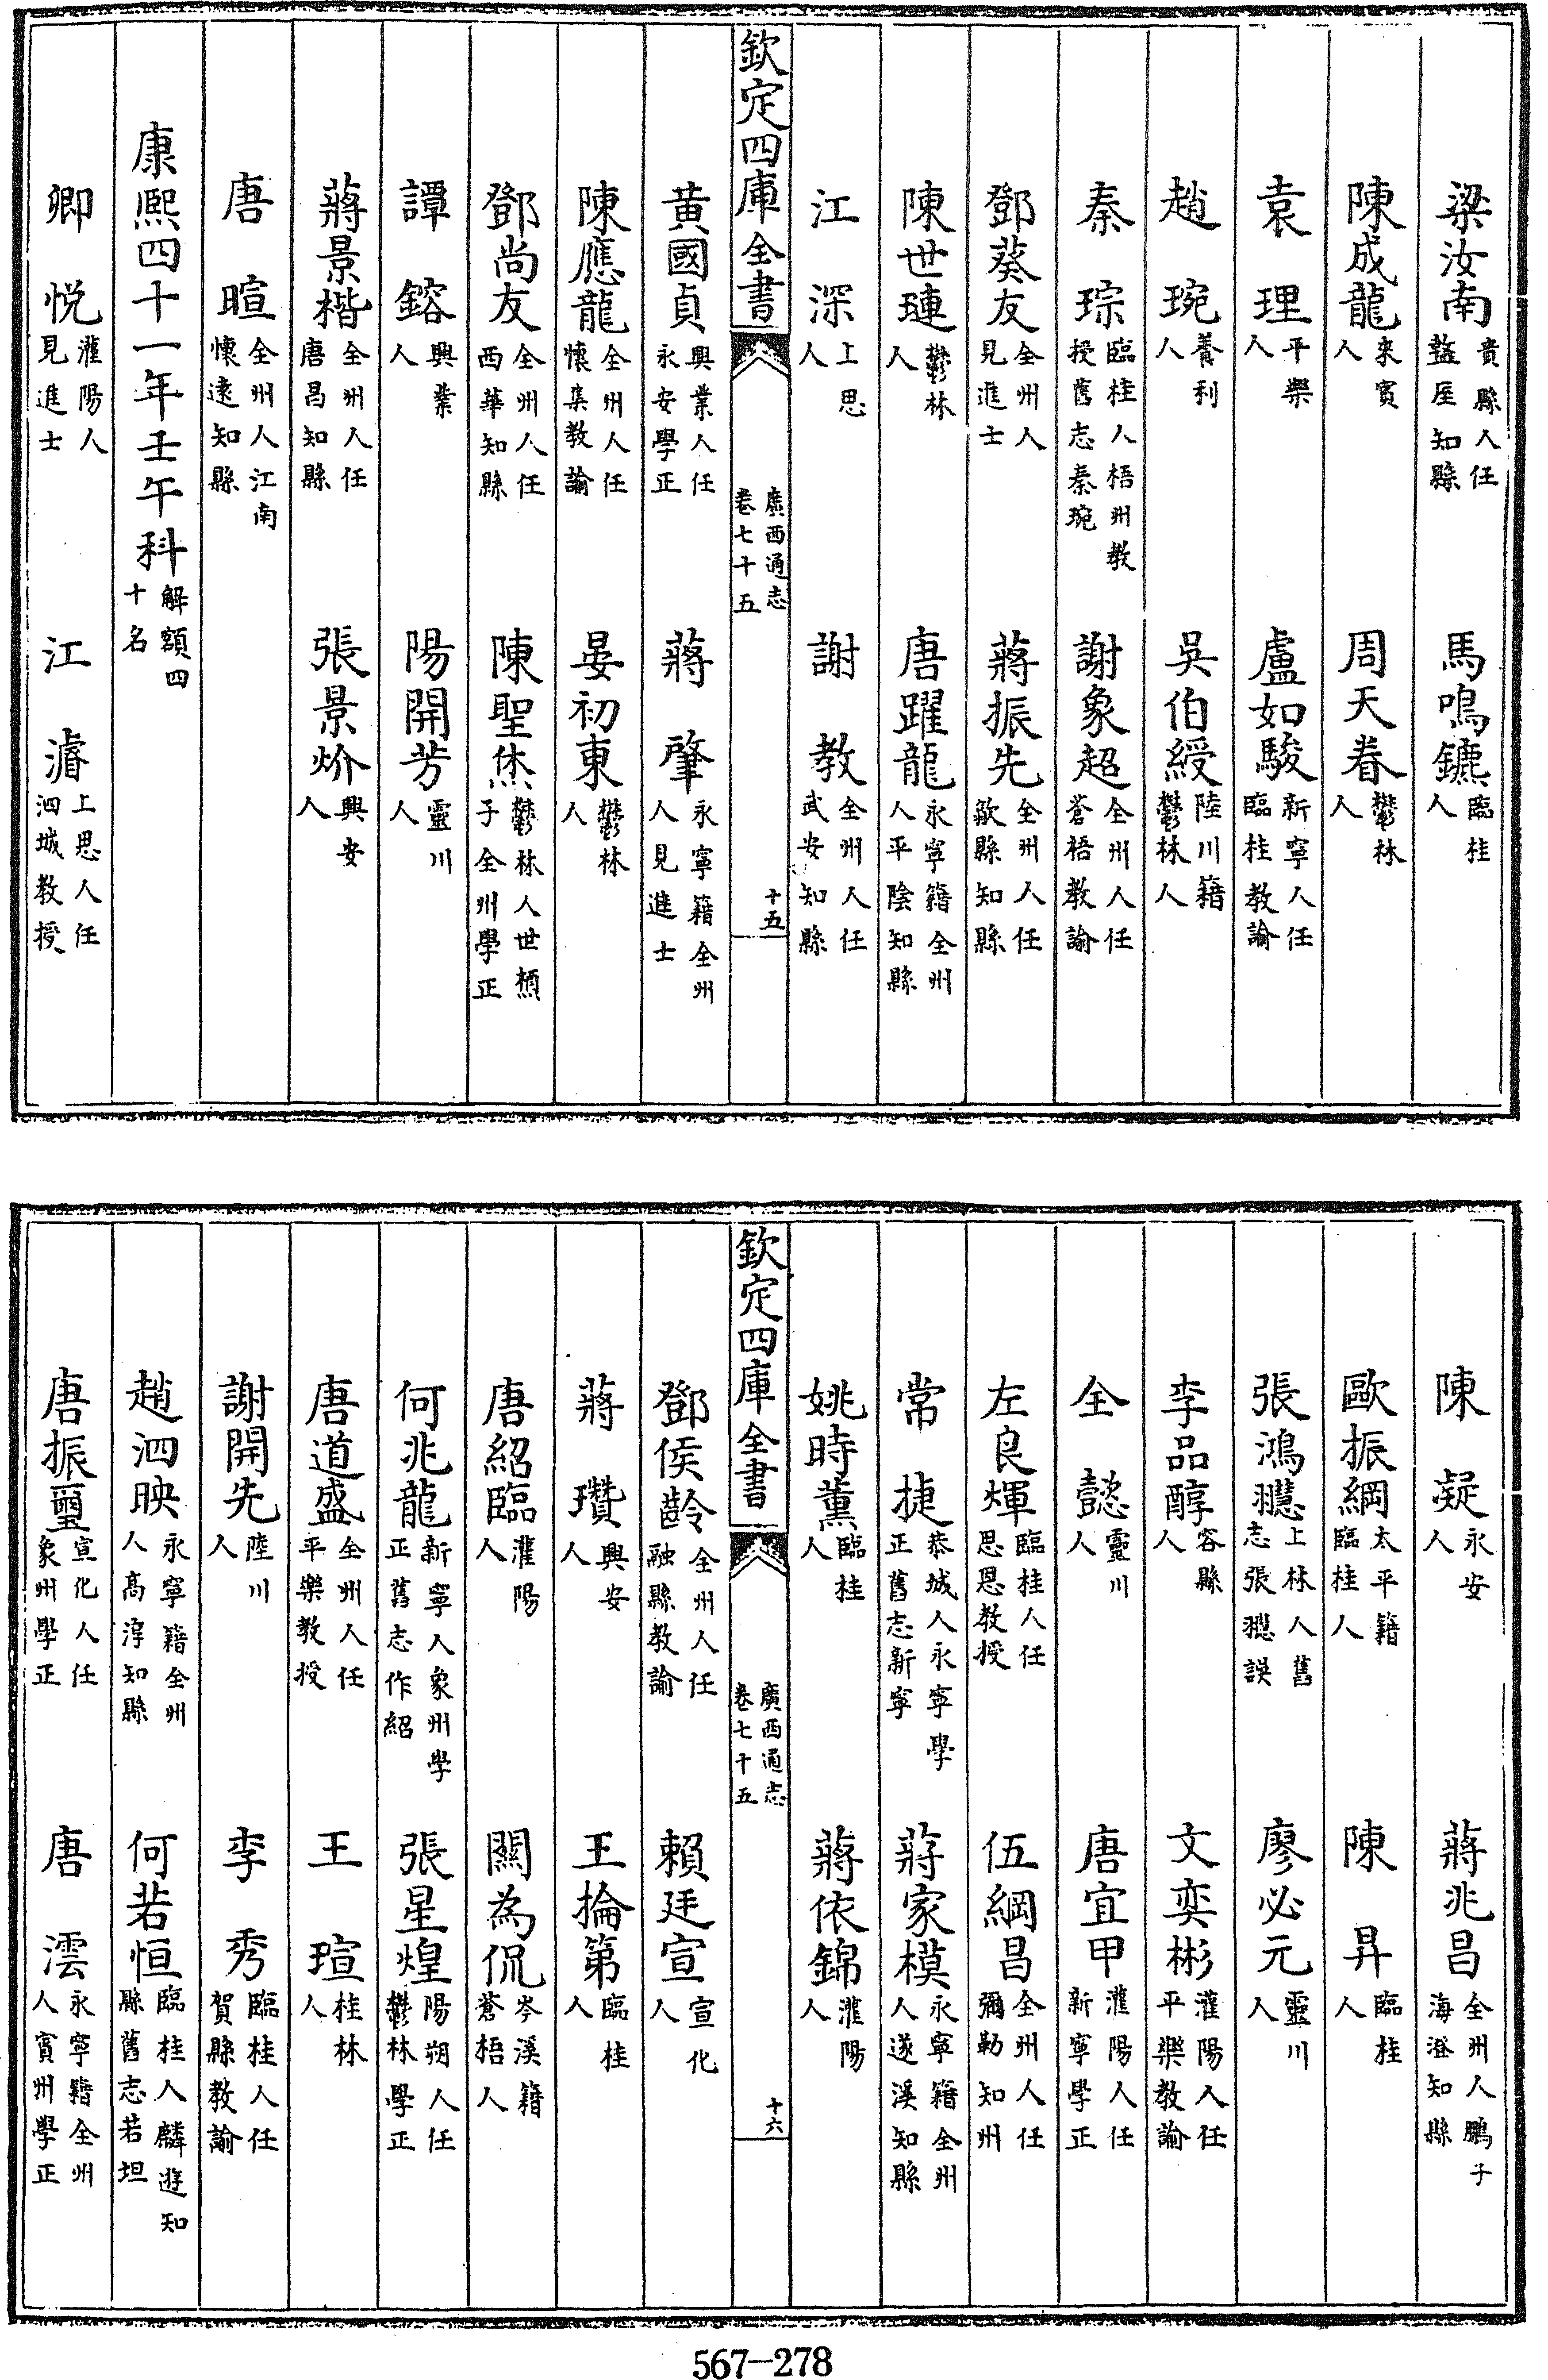 梁汝南貴縣人任盩厔知縣　馬鳴鑣臨桂人
陳成龍來賓人　周天眷鬱林人
袁理平樂人　盧如駿新寧人任臨桂教諭
趙琬養利人　吳伯綬陸川籍鬱林人
秦琮臨桂人梧州教授舊志秦琬　謝象超全州人任蒼梧教諭
鄧葵友全州人見進士　蔣振先全州人任歙縣知縣
陳世璉鬱林人　唐躍龍永寧籍全州人平陰知縣
江深上思人　謝教全州人任武安知縣
欽定四庫全書　廣西通志卷七十五　十五
黃國貞興業人任永安學正　蔣肇永寧籍全州人見進士
陳應龍全州人任懷集教諭　晏初東鬱林人
鄧尚友全州人任西華知縣　陳聖烋鬱林人世㯋子全州學正
譚鎔興業人　陽開芳靈川人
蔣景楷全州人任唐昌知縣　張景炌興安人
唐暄全州人江南懷遠知縣
康熙四十一年壬午科解額四十名
卿悅灌陽人見進士　江濬上思人任泗城教授
陳凝永安人　蔣兆昌全州人鵬子海澄知縣
歐振綱太平籍臨桂人　陳昇臨桂人
張鴻㬢上林人舊志張㬢誤　廖必元靈川人
李品醇容縣人　文奕彬灌陽人任平樂教諭
全懿靈川人　唐宜甲灌陽人任新寧學正
左良煇臨桂人任思恩教授　伍綱昌全州人任彌勒知州
常捷恭城人永寧學正舊志新寧　蔣家模永寧籍全州人遂溪知縣
姚時薰臨桂人　蔣依錦灌陽人
欽定四庫全書　廣西通志卷七十五　十六
鄧侯齡全州人任融縣教諭　賴廷宣宣化人
蔣瓚興安人　王掄第臨桂人
唐紹臨灌陽人　關為侃岑溪籍蒼梧人
何兆龍新寧人象州學正舊志作紹　張星煌陽朔人任鬱林學正
唐道盛全州人任平樂教授　王瑄桂林人
謝開先陸川人　李秀臨桂人任賀縣教諭
趙泗映永寧籍全州人高淳知縣　何若恒臨桂人麟遊知縣舊志若坦
唐振璽宣化人任象州學正　唐澐永寧籍全州人賓州學正
567-278